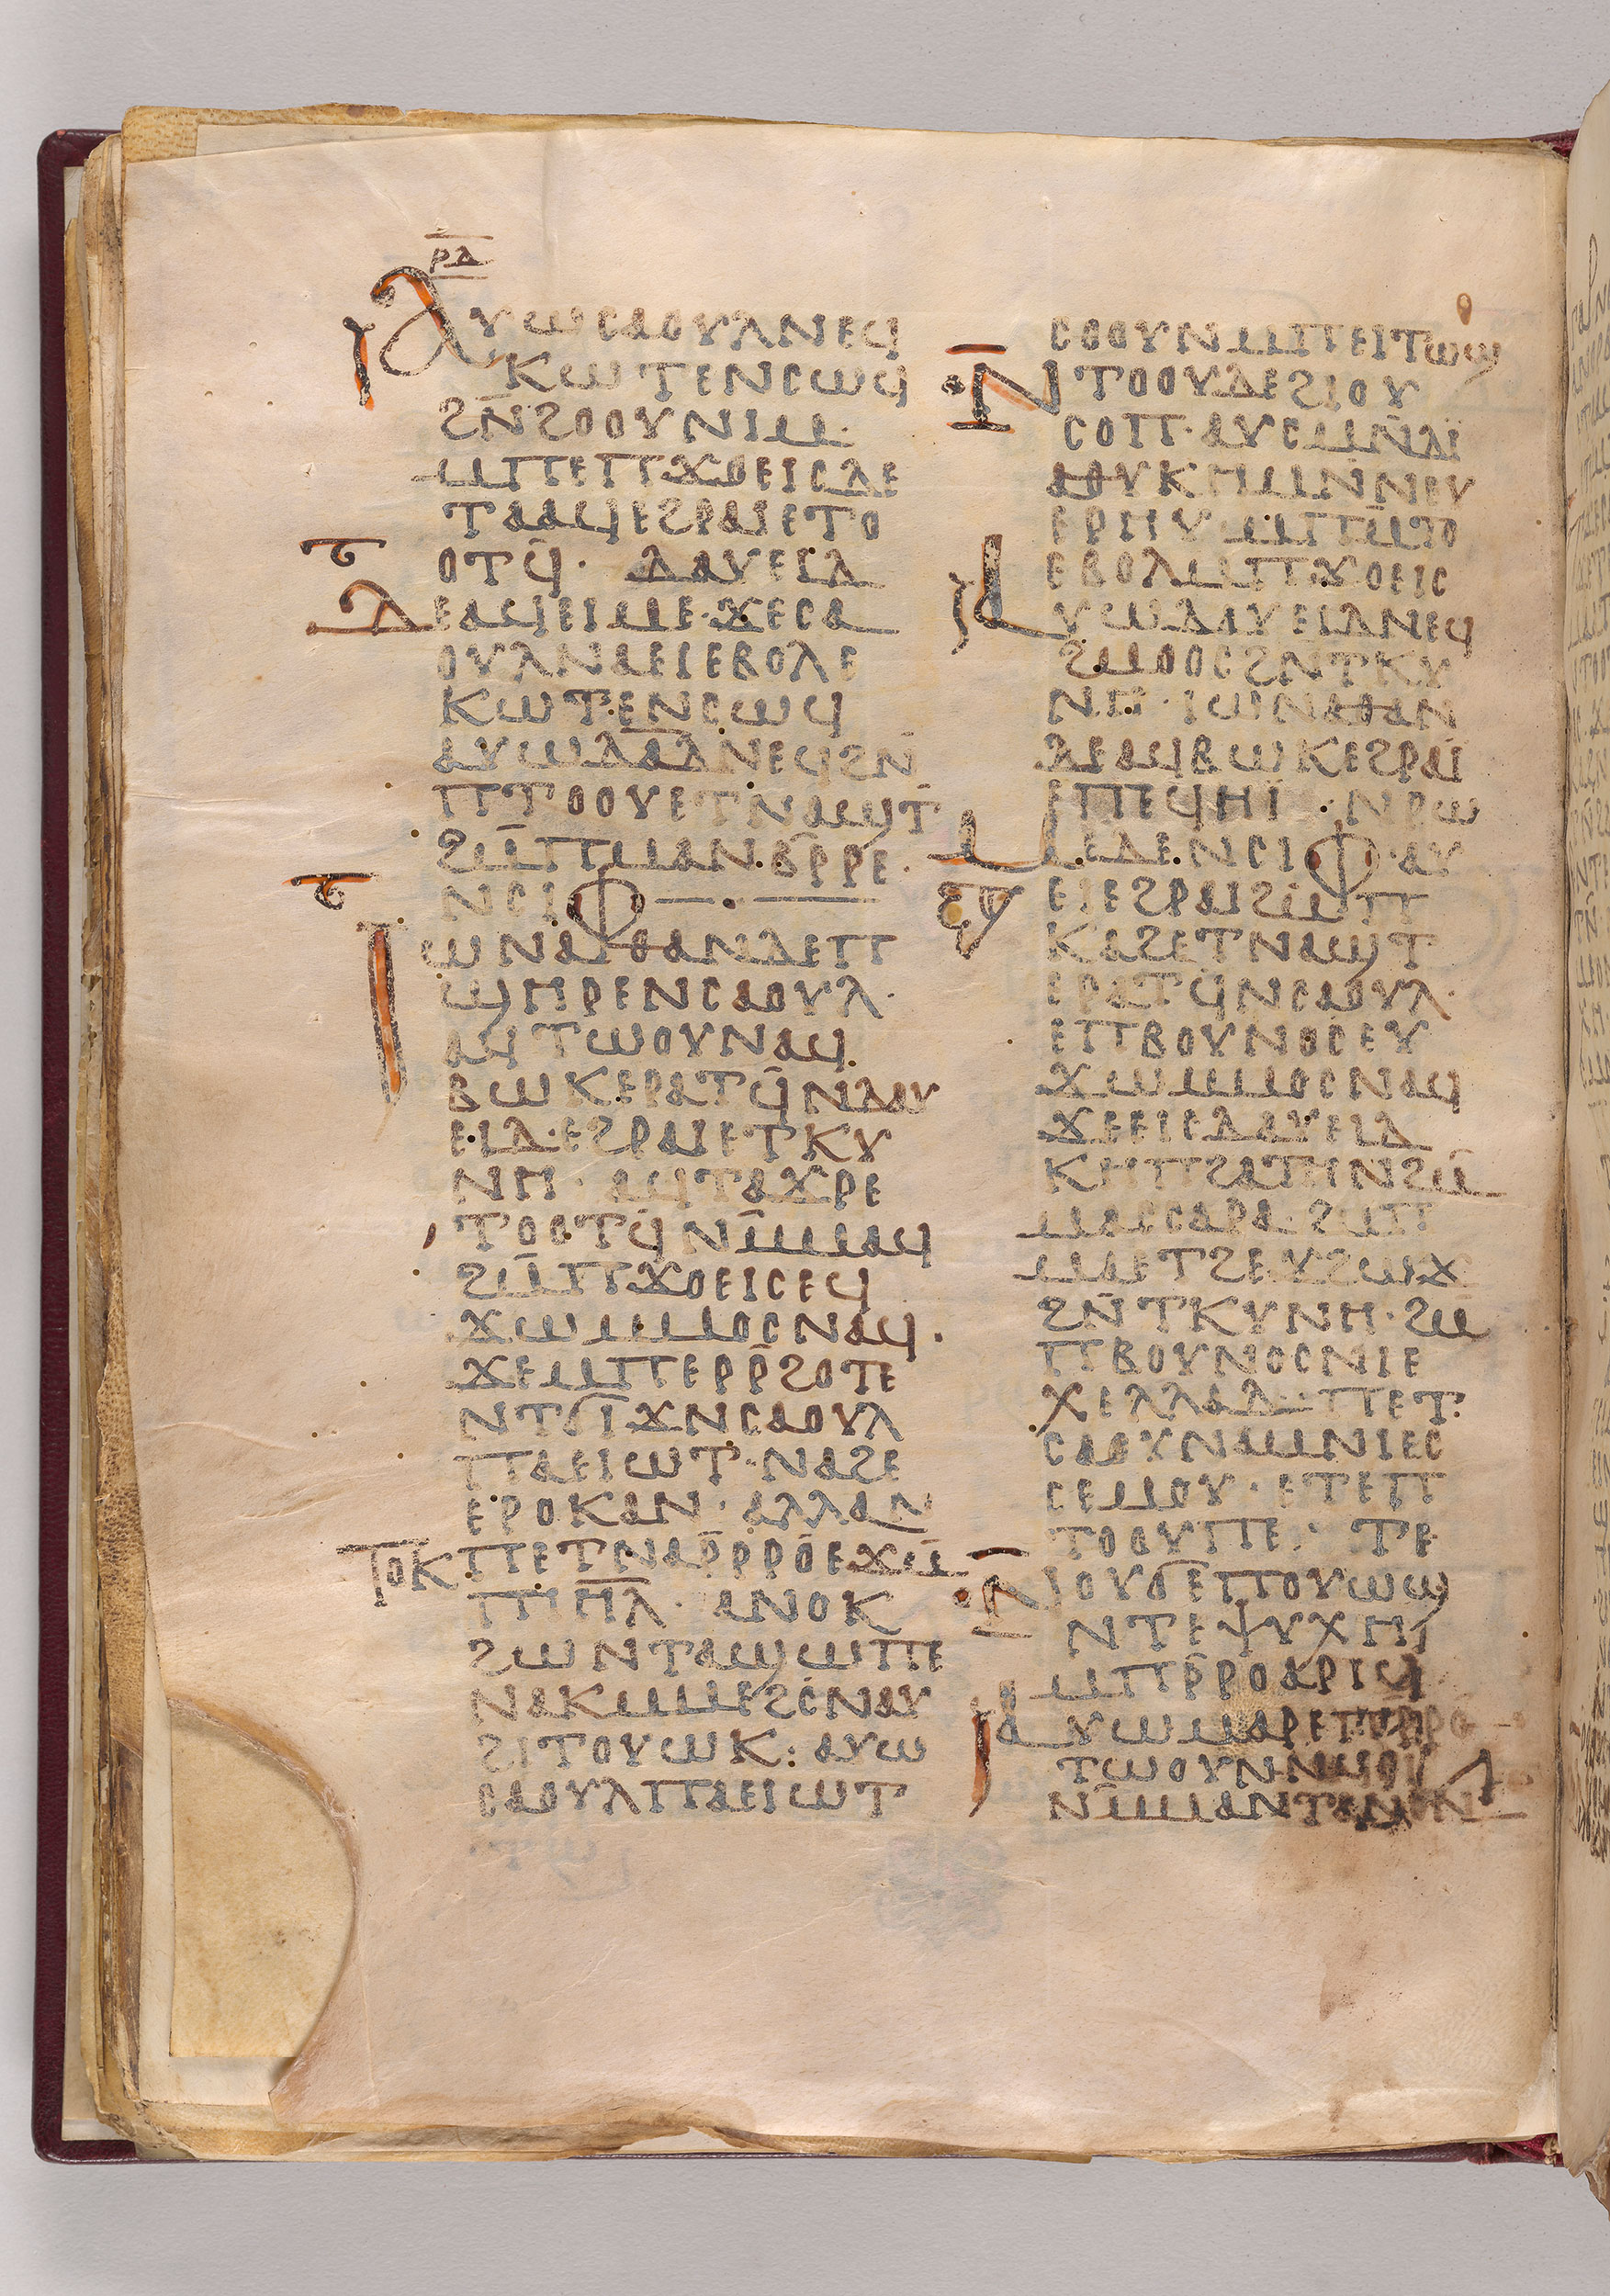 ⲣⲇ
ⲁⲩⲱⲥⲁⲟⲩⲗⲛⲉϥ
ⲕⲱⲧⲉⲛⲥⲱϥ
ϩⲛ̄ϩⲟⲟⲩⲛⲓⲙ·
ⲙⲡⲉⲡϫⲟⲉⲓⲥⲇⲉ
ⲧⲁⲁϥⲉϩⲣⲁⲓⲉⲧⲟ
ⲟⲧϥ̄· ⲇⲁⲩⲉⲓⲇ
ⲇⲉⲁϥⲉⲓⲙⲉ·ϫⲉⲥⲁ
ⲟⲩⲗⲛⲁⲉⲓⲉⲃⲟⲗⲉ
ⲕⲱⲧⲉⲛⲥⲱϥ
ⲁⲩⲱⲇⲁ̄ⲇⲛⲉϥϩⲛ̄
ⲡⲧⲟⲟⲩⲉⲧⲛⲁϣⲧ̄
ϩⲙ̄ⲡⲙⲁⲛⲃ̄ⲣⲣⲉ·
ⲛⲥⲓⲫ
ⲓⲱⲛⲁⲑⲁⲛⲇⲉⲡ
ϣⲏⲣⲉⲛⲥⲁⲟⲩⲗ·
ⲁϥⲧⲱⲟⲩⲛⲁϥ
ⲃⲱⲕⲉⲣⲁⲧϥ̄ⲛⲇⲁⲩ
ⲉⲓⲇ·ⲉϩⲣⲁⲓⲉⲧⲕⲩ
ⲛⲏ· ⲁϥⲧⲁϫⲣⲉ
ⲧⲟⲟⲧϥ̄ⲛⲙ̄ⲙⲁϥ
ϩⲙ̄ⲡϫⲟⲉⲓⲥⲉϥ
ϫⲱⲙⲙⲟⲥⲛⲁϥ·
ϫⲉⲙⲡⲉⲣⲣ̄ϩⲟⲧⲉ
ⲛⲧϭⲓϫⲛⲥⲁⲟⲩⲗ
ⲡⲁⲉⲓⲱⲧ·ⲛⲁϩⲉ
ⲉⲣⲟⲕⲁⲛ· ⲁⲗⲗⲁⲛ
ⲧⲟⲕⲡⲉⲧⲛⲁⲣ̄ⲣⲣⲟⲉϫⲙ̄
ⲡⲓⲏ̄ⲗ· ⲁⲛⲟⲕ
ϩⲱⲛⲧⲁϣⲱⲡⲉ
ⲛⲁⲕⲙⲙⲉϩⲥⲛⲁⲩ
ϩⲓⲧⲟⲩⲱⲕ: ⲁⲩⲱ
ⲥⲁⲟⲩⲗⲡⲁⲉⲓⲱⲧ
ⲥⲟⲟⲩⲛⲙⲡⲉⲓⲧⲱϣ
ⲛⲧⲟⲟⲩⲇⲉϩⲓⲟⲩ
ⲥⲟⲡ·ⲁⲩⲥⲙⲛ̄ⲇⲓ
ⲁⲑⲩⲕⲏⲙⲛⲛⲉⲩ
ⲉⲣⲏⲩ ⲙⲡⲙ̄ⲧⲟ
ⲉⲃⲟⲗⲙⲡϫⲟⲉⲓⲥ
ⲁⲩⲱⲇⲁⲩⲉⲓⲇⲛⲉϥ
ϩⲙⲟⲟⲥϩⲛⲧⲕⲩ
ⲛⲏ·ⲓⲱⲛⲁⲑⲁⲛ
ⲇⲉⲁϥⲃⲱⲕⲉϩⲣⲁⲓ̈
ⲉⲡⲉϥⲏⲓ̈ ·ⲛⲣⲱ
ⲙⲉⲇⲉⲛⲥⲓⲫ·ⲁⲩ
ⲉⲓⲉϩⲣⲁⲓϩⲙⲡ
ⲕⲁϩⲉⲧⲛⲁϣⲧ
ⲉⲣⲁⲧϥⲛⲥⲁⲟⲩⲗ·
ⲉⲡⲃⲟⲩⲛⲟⲥⲉⲩ
ϫⲱⲙⲙⲟⲥⲛⲁϥ
ϫⲉⲉⲓⲉⲇⲁⲩⲉⲓⲇ
ⲕⲏⲡϩⲁⲧⲏⲛϩⲙ̄
ⲙⲁⲥⲥⲁⲣⲁ·ϩⲙⲡ
ⲙⲉⲧϩⲉⲩϩⲱϫ
ϩⲛ̄ⲧⲕⲩⲛⲏ·ϩⲙ
ⲡⲃⲟⲩⲛⲟⲥⲛⲓⲉ
ⲭⲉⲗⲗⲁⲇ·ⲡⲉⲧ
ⲥⲁⲟⲩⲛⲁⲙⲛⲓⲉⲥ
ⲥⲉⲙⲟⲩ·ⲉⲧⲉⲡ
ⲧⲟⲟⲩⲡⲉ· ⲧⲉ
ⲛⲟⲩϭⲉⲡⲟⲩⲱϣ
ⲛⲧⲉⲯⲩⲭⲏ
ⲙⲡⲣ̄ⲣⲟⲁⲣⲓϥ
ⲁⲩⲱⲙⲁⲣⲉⲡⲣ̄ⲣⲟ
ⲧⲱⲟⲩⲛ
ⲛⲙ̄ⲙⲁⲛ